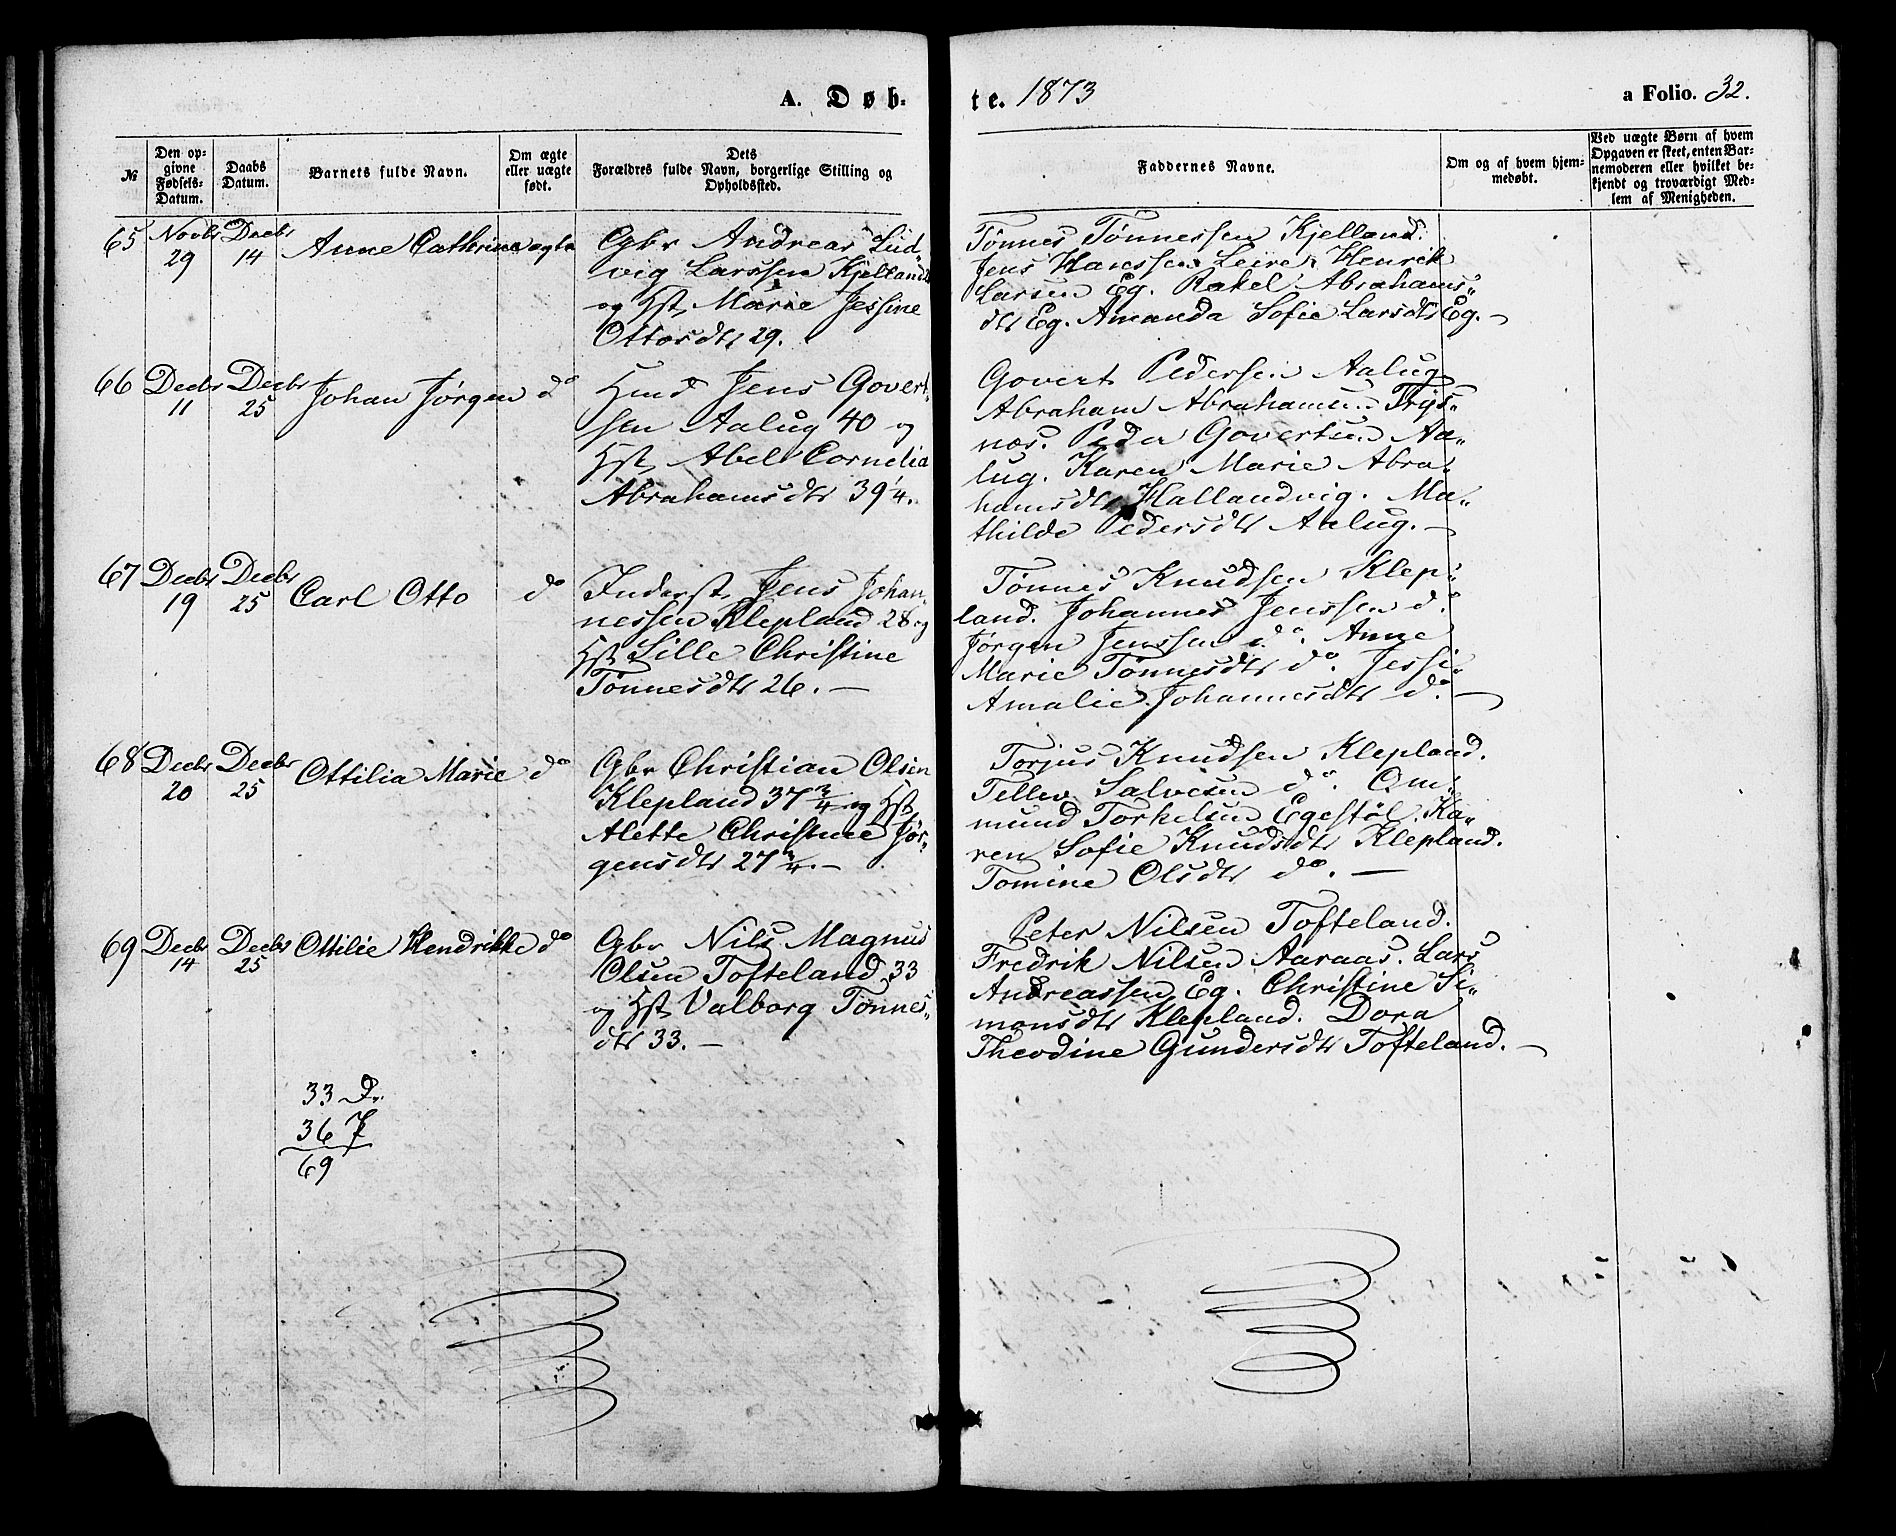 A. Døb-
te. 1873
a Folio. 32.
№
Den op-
givne
Fødsels-
Datum.
Daabs
Datum.
Barnets fulde Navn.
Om ægte
eller uægte
født.
Dets
Forældres fulde Navn, borgerlige Stilling og
Opholdssted.
Faddernes Navne.
Om og af hvem hjem-
medøbt.
Ved uægte Børn af hvem
Opgaven er skeet, enten Bar-
nemoderen eller hvilket be-
kjendt og troværdigt Med-
lem af Menigheden.
65 Novbr 29 Decbr 14 Anne Cathrine ægte
Gbr Andreas Lud-
vig Larssen Kjelland
og Hst Marie Jessine
Ottosdtr 29.
Tønnes Tønnessen Kjelland.
Jens Hanssen Leire. Henrik
Larsen Eg. Rakel Abrahams-
dtr Eg. Amanda Sofie Larsdtr Eg. —
66 Decbr 11 Decbr 25 Johan Jørgen do
Hmd Jens Govert-
sen Aalug 40 og
Hst Abel Cornelia
Abrahamsdtr 39 1/4.
Govert Pedersen Aalug
Abraham Abrahamsen Trys-
næs. Peder Govertsen Aa-
lug. Karen Marie Abra-
hamsdtr Hallandvig. Ma-
thilde Pedersdtr Aalug. —
67 Decbr 19 Decbr 25 Carl Otto do
Inderst Jens Johan-
nessen Klepland 28 og
Hst Sille Christine
Tønnesdtr 26. —
Tønnes Knudsen Klep-
land. Johannes Jenssen do.
Jørgen Jenssen do. Anne
Marie Tønnesdtr do. Jessi-
Amalie Johannesdtr do. —
68 Decbr 20 Decbr 25 Ottilia Marie do
Gbr Christian Olsen
Klepland 37 3/4 og Hst
Alette Christine Jør-
gensdtr 27 3/4. —
Torjus Knudsen Klepland.
Tellev Salvesen do. Om-
mund Torkelsen Egestøl. Ka-
ren Sofie Knudsdtr Klepland.
Tomine Olsdtr do. —
69 Decbr 14 Decbr 25 Ottilie Hendrikke do
Gbr Nils Magnus
Olsen Tofteland 33
og Hst Valborg Tønnes-
dtr 33. —
Peter Nilsen Tofteland.
Fredrik Nilsen Aaraas. Lars
Andreassen Eg. Christine Si-
monsdtr Klepland. Dora
Theodine Gundersdtr Tofteland. —
33 D.
36 P
69